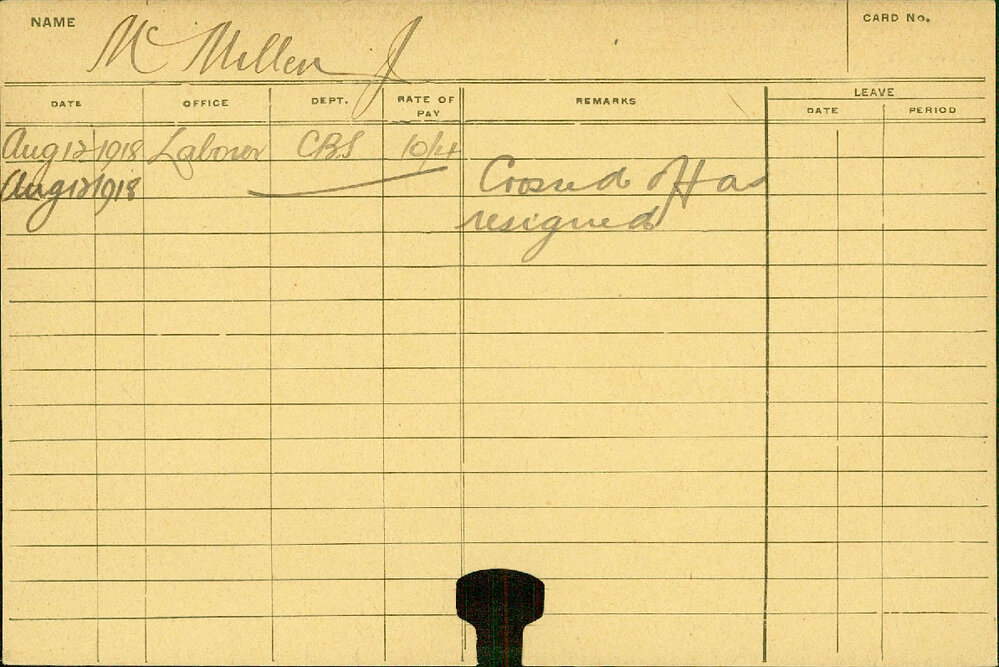 NAME Mc Millen J CARD No.
DATE OFFICE DEPT. RATE OF PAY REMARKS LEAVE
DATE PERIOD
Aug 12 1918 Laborer CBS 10/4
Aug 12 1918 Crossed Off as
resigned